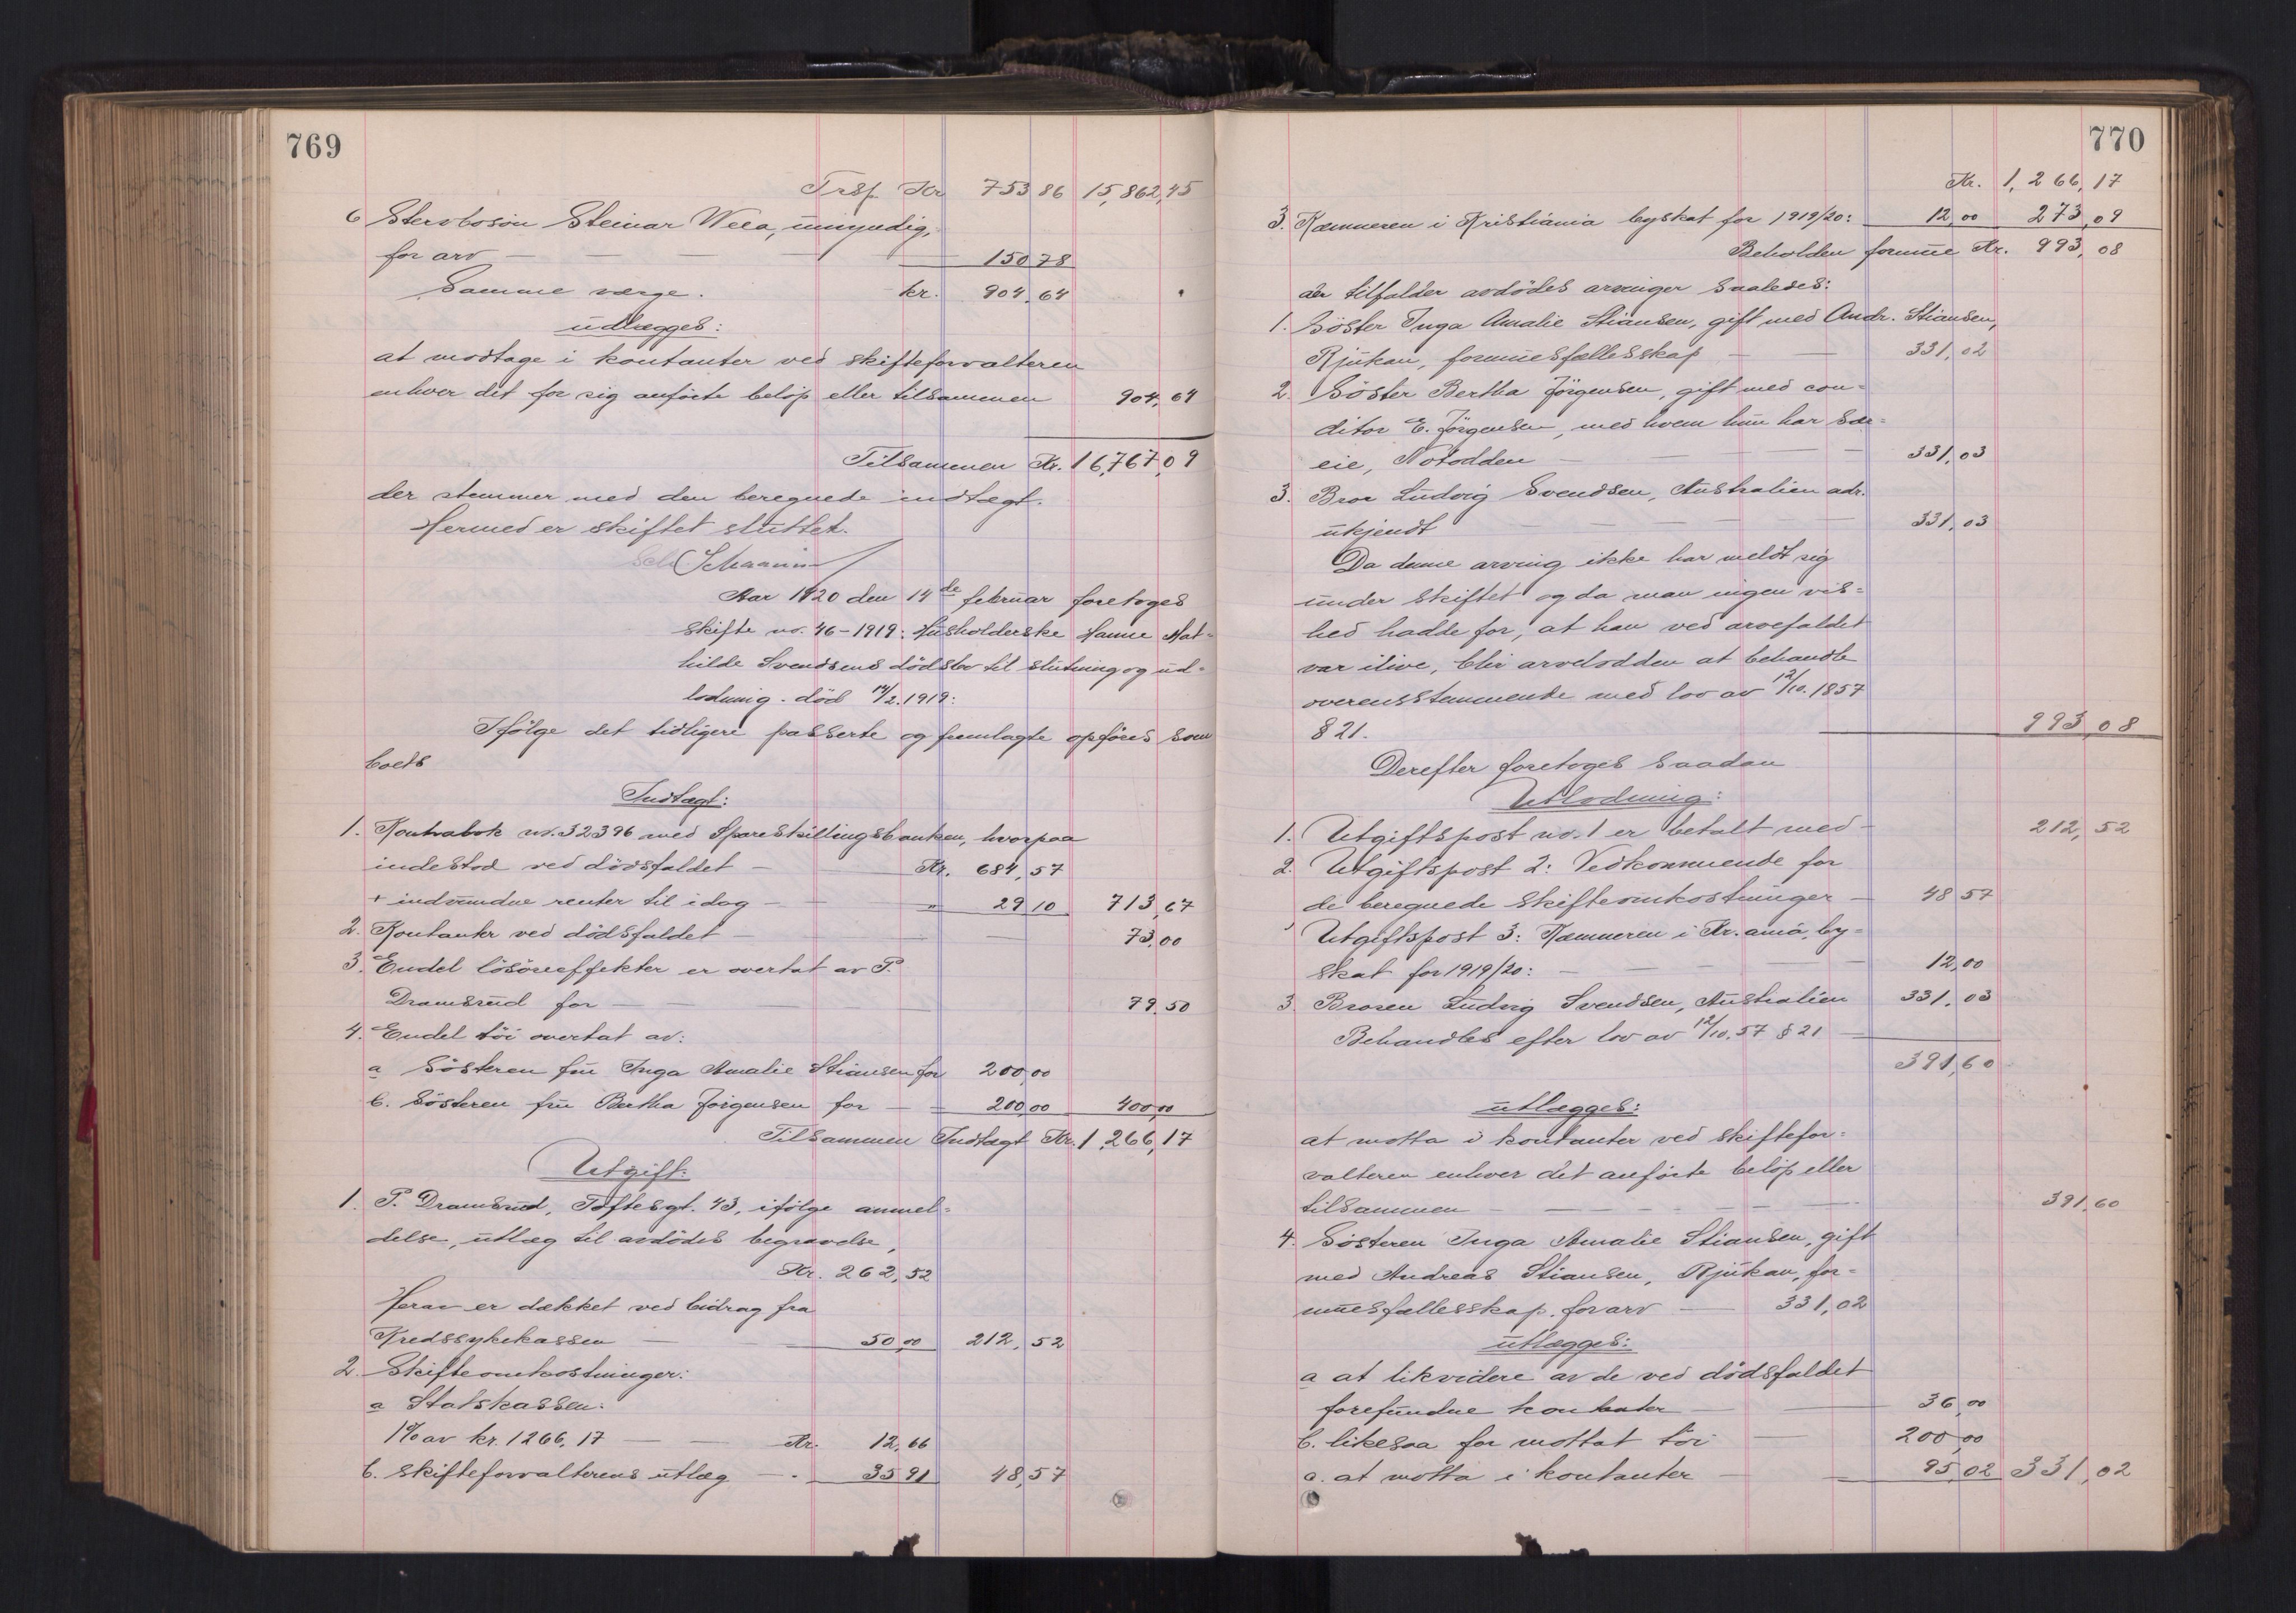 769
Trsp. Kr 753 86 15,862,45
6 Stervbosön Steinar Wela, umyndig,
for arv — — — — — 150 78
Samme værge. kr. 904.64
udlægges:
at modtage i kontanter ved skifteforvalteren
enhver det for sig anförte belöp eller tilsammen 904,64
Tilsammen Kr. 16,767,09
der stemmer med den beregnede indtægt.
Hermed er skiftet sluttet.
Aar 1920 den 14de februar foretoges
skifte no. 46-1919: Husholderske Hanne Mat=
hilde Svendsens dödsbo til slutning og ud=
lodning. död 14/2.1919:
Ifölge det tidligere passerte og fremlagte opföres som
boets
Indtægt:
1. Kontrabok no. 32396 med Spareskillingsbanken, hvorpaa
indestod ved dödsfaldet — Kr. 684,57
+ indvundne renter til idag — — „ 29 10 713,67
2. Kontanter ved dödsfaldet — — — 73,00
3. Endel lösöreeffekter er overtat av P.
Dramsrud for — — — 79.50
4. Endel töi overtat av:
a Sösteren fru Inga Amalie Stiansen for 200,00
b. Sösteren fru Bertha Jörgensen for — — 200,00 400,00
Tilsammen Indtægt Kr. 1,266,17
Utgift:
1. P. Dramsrud, Toftesgt. 43, ifölge anmel=
delse, utlæg til avdödes begravelse,
Kr. 262,52
Herav er dækket ved bidrag fra
Kredssykekassen — — 50,00 212,52
2. Skifteomkostninger:
a Statskassen:
1% av kr. 1266,17 — — Kr. 12,66
b. skifteforvalterens utlæg — - 35 91 48,57
770
Kr. 1,266,17
3. Kæmneren i Kristiania byskat for 1919/20: 12,00 273,09
Beholden formue Kr. 993,08
der tilfalder avdödes arvinger saaledes:
1. Söster Inga Amalie Stiansen, gift med Andr. Stiansen,
Rjukan, formuesfællesskap — — 331,02
2. Söster Bertha Jörgensen, gift med con=
ditor E. Jörgensen, med hvem hun har sær=
eie, Notodden — — — 331,03
3. Bror Ludvig Svendsen, Australien adr.
ukjendt — — — 331,03
Da denne arving ikke har meldt sig
under skiftet og da man ingen vis=
hed hadde for, at han ved arvefaldet
var ilive, blir arvelodden at behandle
overensstemmende med lov av 12/10.1857
§ 21. — 993,08
Derefter foretoges saadan
Utlodning:
1. Utgiftspost no. 1 er betalt med — 212,52
2. Utgiftspost 2: Vedkommende for
de beregnede skifteomkostninger — 48 57
Utgiftspost 3: Kæmneren i Kr.ania, by=
skat for 1919/20: — — — 12,00
3 Broren Ludvig Svendsen, Australien 331,03
Behandles efter lov av 12/10.57 § 21 —
391,60
utlægges:
at motta i kontanter ved skiftefor=
valteren enhver det anförte belöp eller
tilsammen — — — — — 391,60
4. Sösteren Inga Amalie Stiansen, gift
med Andreas Stiansen, Rjukan, for=
muesfællesskap, for arv — 331,02
utlægges:
a at likvidere av de ved dödsfaldet
forefundne kontanter — — 36,00
b. likesaa for mottat töi — 200,00
a. at motta i kontanter — — 95,02 331,02